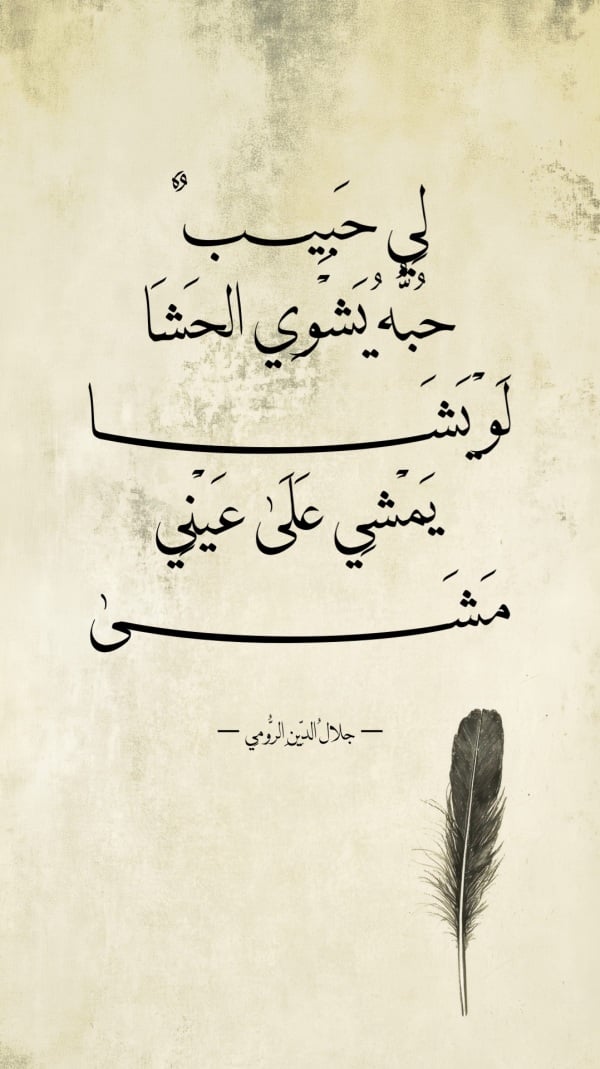 لِي حَبِيبٌ
حُبُّهُ يُشْوِي الحَشَا
لَوْ يَشَا
يَمْشِي عَلَىٰ عَيْنِي
مَشَىٰ
— جلالُ الدّينِ الرُّومي —